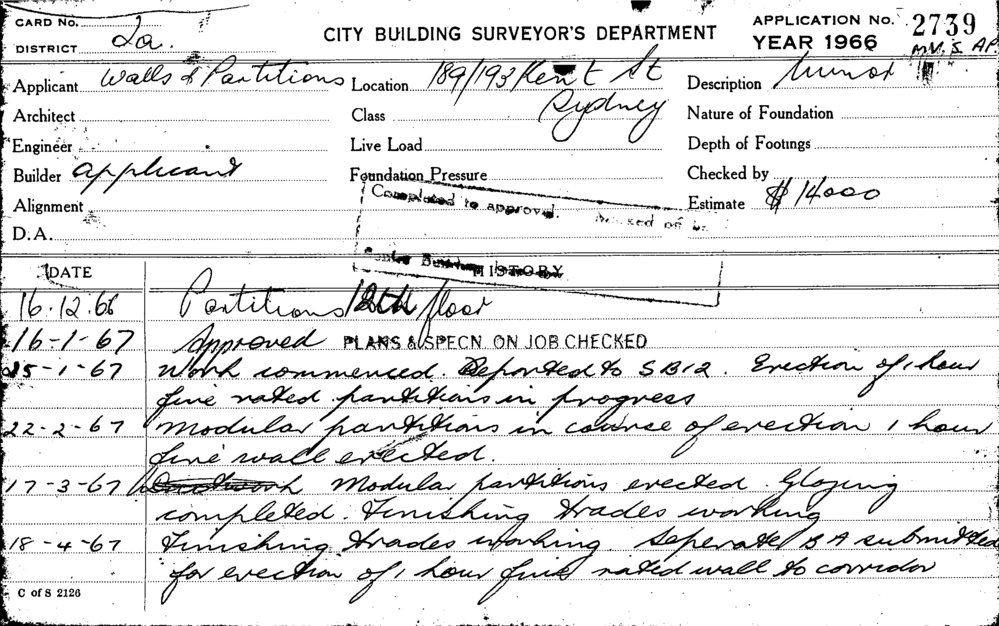 CARD No.
DISTRICT 2a.
CITY BUILDING SURVEYOR'S DEPARTMENT
APPLICATION No. 2739
YEAR 1966 MM. S. AP.
Applicant Walls & Partitions Location 189/193 Kent St Description Minor
Sydney
Architect Class Nature of Foundation
Engineer Live Load Depth of Footings
Builder applicant Foundation Pressure Checked by
Alignment Completed to approval. Estimate $14000
D.A.
DATE HISTORY
16.12.66 Partitions 12th floor
16-1-67 Approved PLANS & SPECN. ON JOB CHECKED
25-1-67 Work commenced. Reported to SB12. Erection of 1 hour
fire rated partitions in progress
22-2-67 Modular partitions in course of erection 1 hour
fire wall erected.
17-3-67 Modular partitions erected. Glazing
completed. Finishing trades working
18-4-67 Finishing trades working. Seperate BA submitted
for erection of 1 hour fire rated wall to corridor
C of S 2126